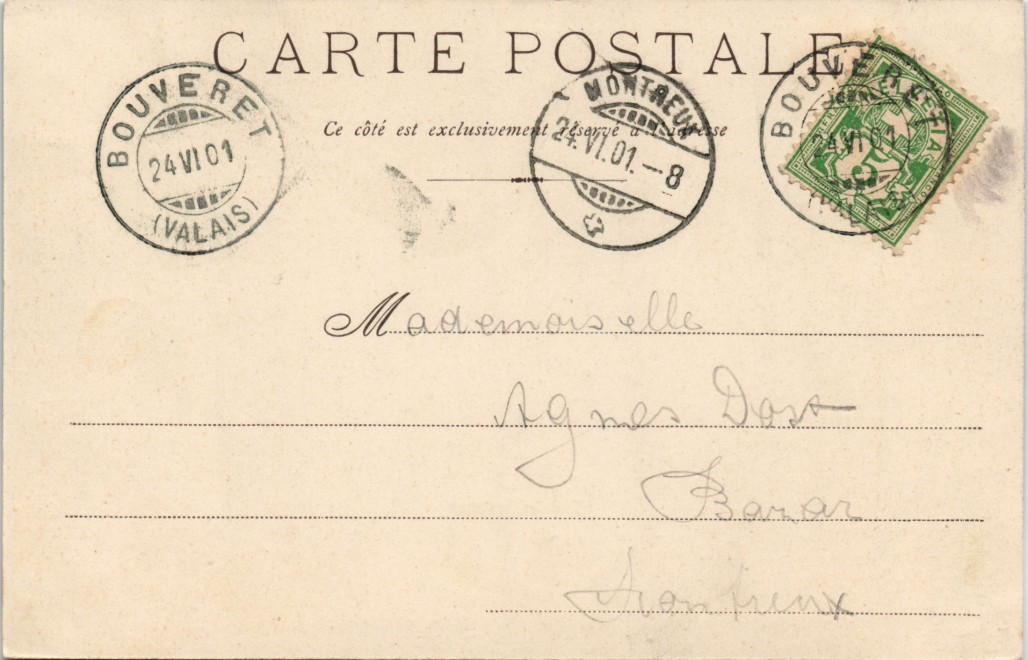 CARTE POSTALE
BOUVERET
24 VI 01
(VALAIS)
MONTREUX
24.VI.01.–8
BOUVERET
24 VI 01
Ce côté est exclusivement réservé à l'adresse
Mademoiselle
Agnes Dost
Bazar
Montreux